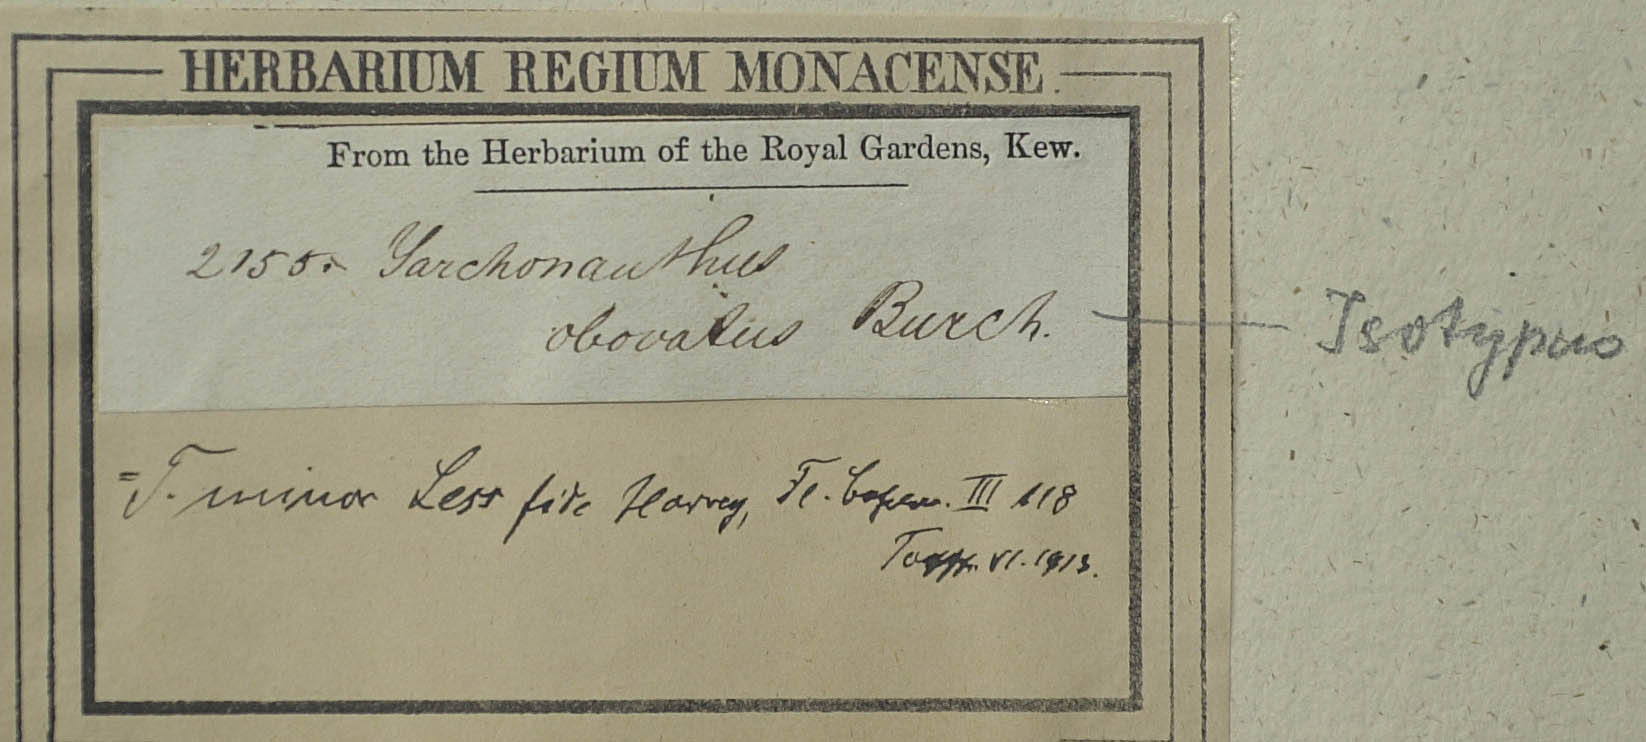 HERBARIUM REGIUM MONACENSE.
From the Herbarium of the Royal Gardens, Kew.
2155. Tarchonanthus
obovatus Burch.
Isotypus
= T. minor Less fide Harvey, Fl. Capen. III 118
VI. 1913.